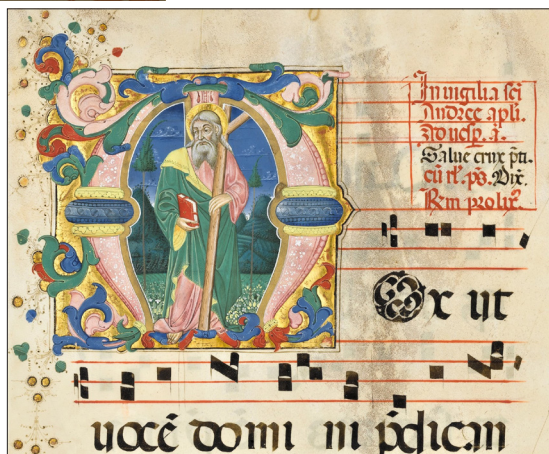 In uigilia sc̄i
Andree apli.
Ad uesp̄. a.
Salue crux p̄ti.
cū rl̄. p̄o. Dix̄.
R̄m prolix̄.
MOx ut
uocē domi ni p̄dican